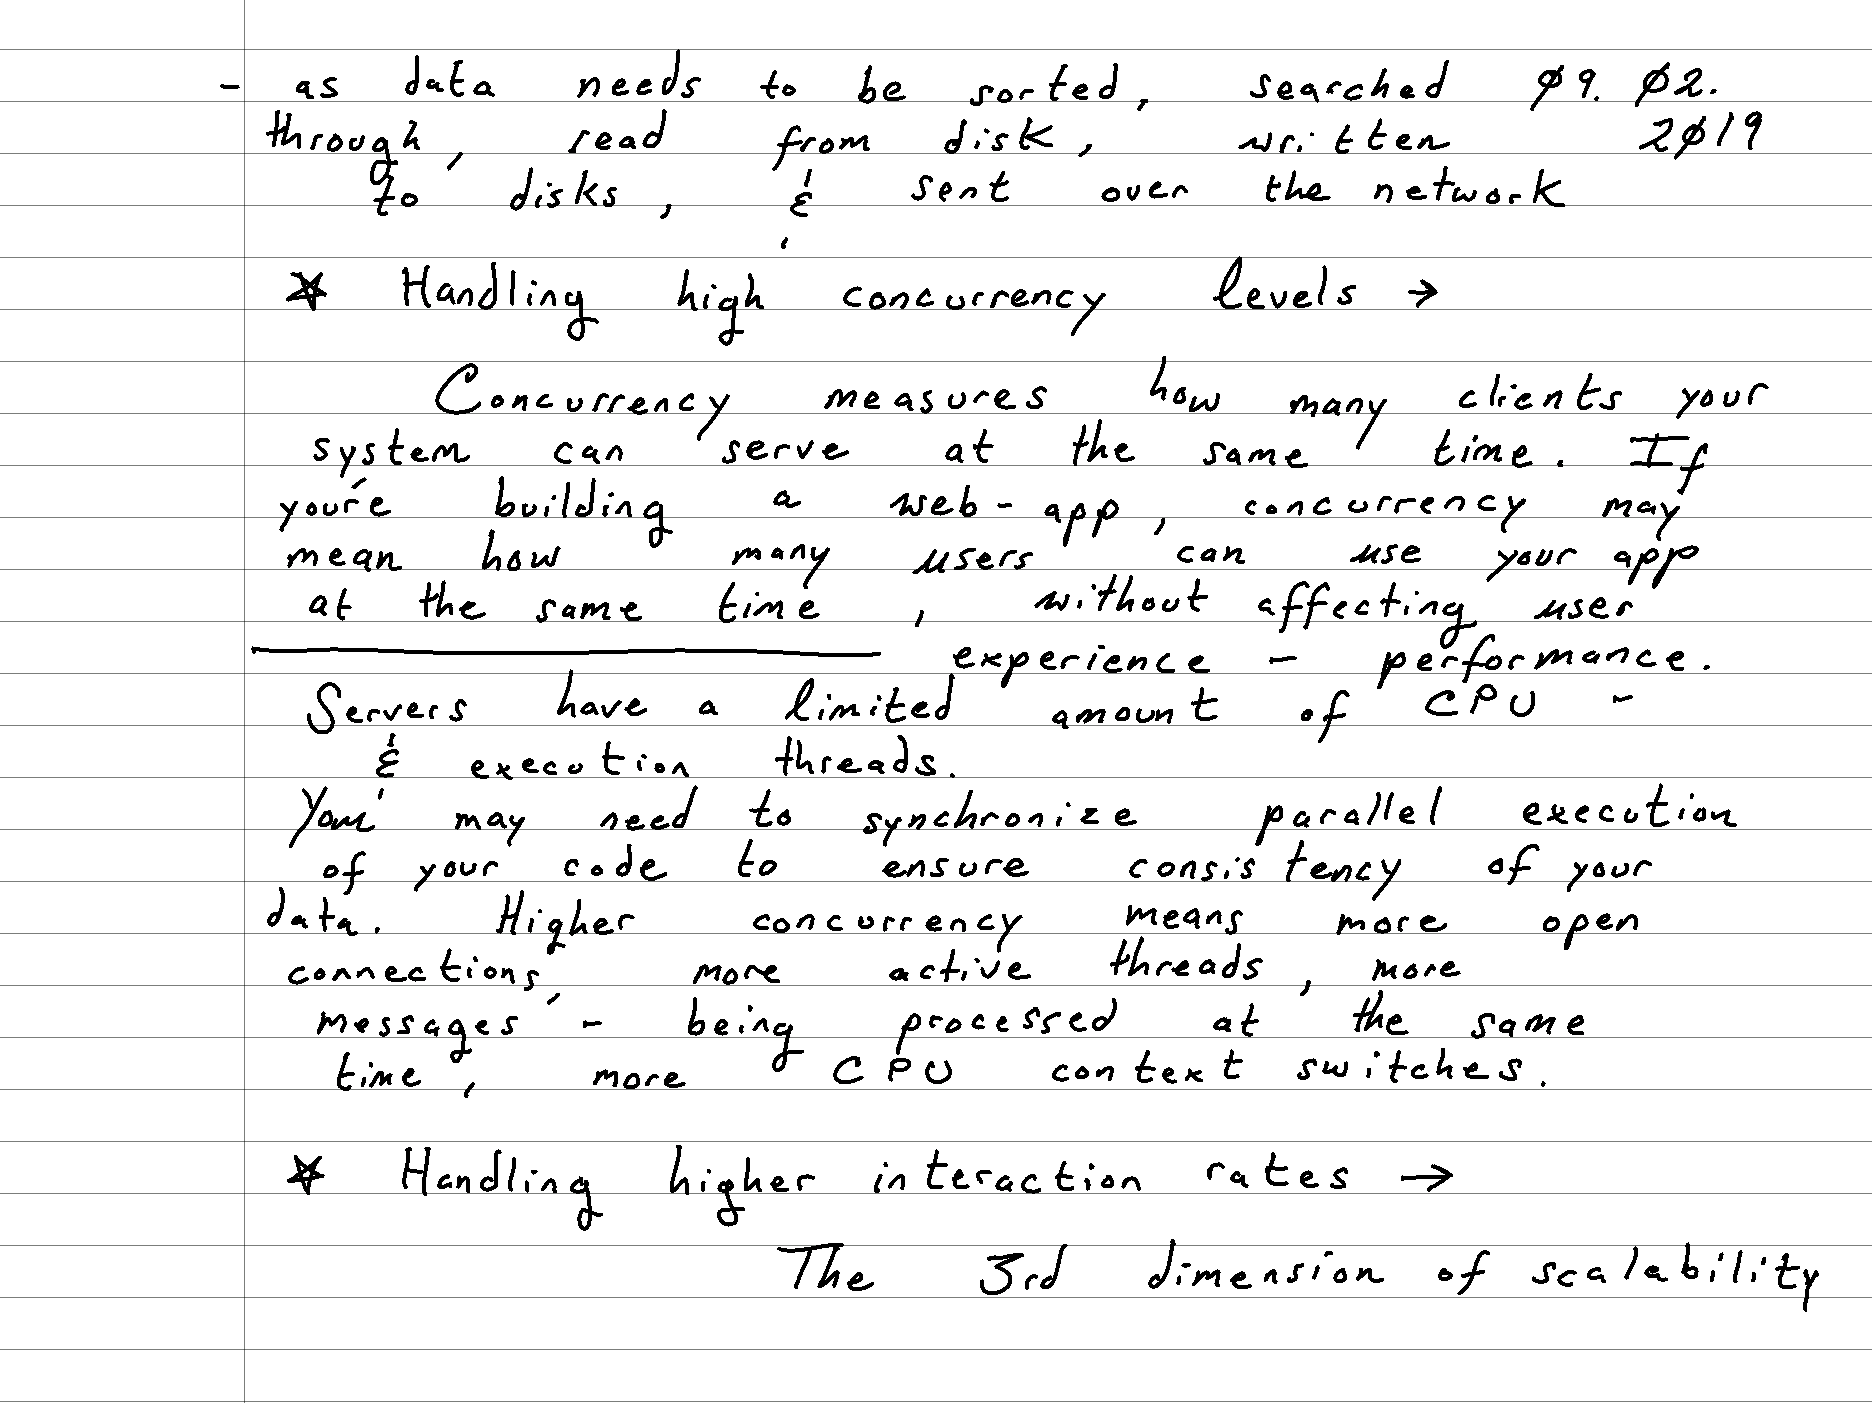 - as data needs to be sorted, searched Ø9. Ø2.
through, read from disk, written 2Ø19
to disks, & sent over the network
☆ Handling high concurrency levels →
Concurrency measures how many clients your
system can serve at the same time. If
you're building a web-app, concurrency may
mean how many users can use your app
at the same time, without affecting user
experience - performance.
Servers have a limited amount of CPU -
& execution threads.
You may need to synchronize parallel execution
of your code to ensure consistency of your
data. Higher concurrency means more open
connections, more active threads, more
messages - being processed at the same
time, more CPU context switches.
☆ Handling higher interaction rates →
The 3rd dimension of scalability